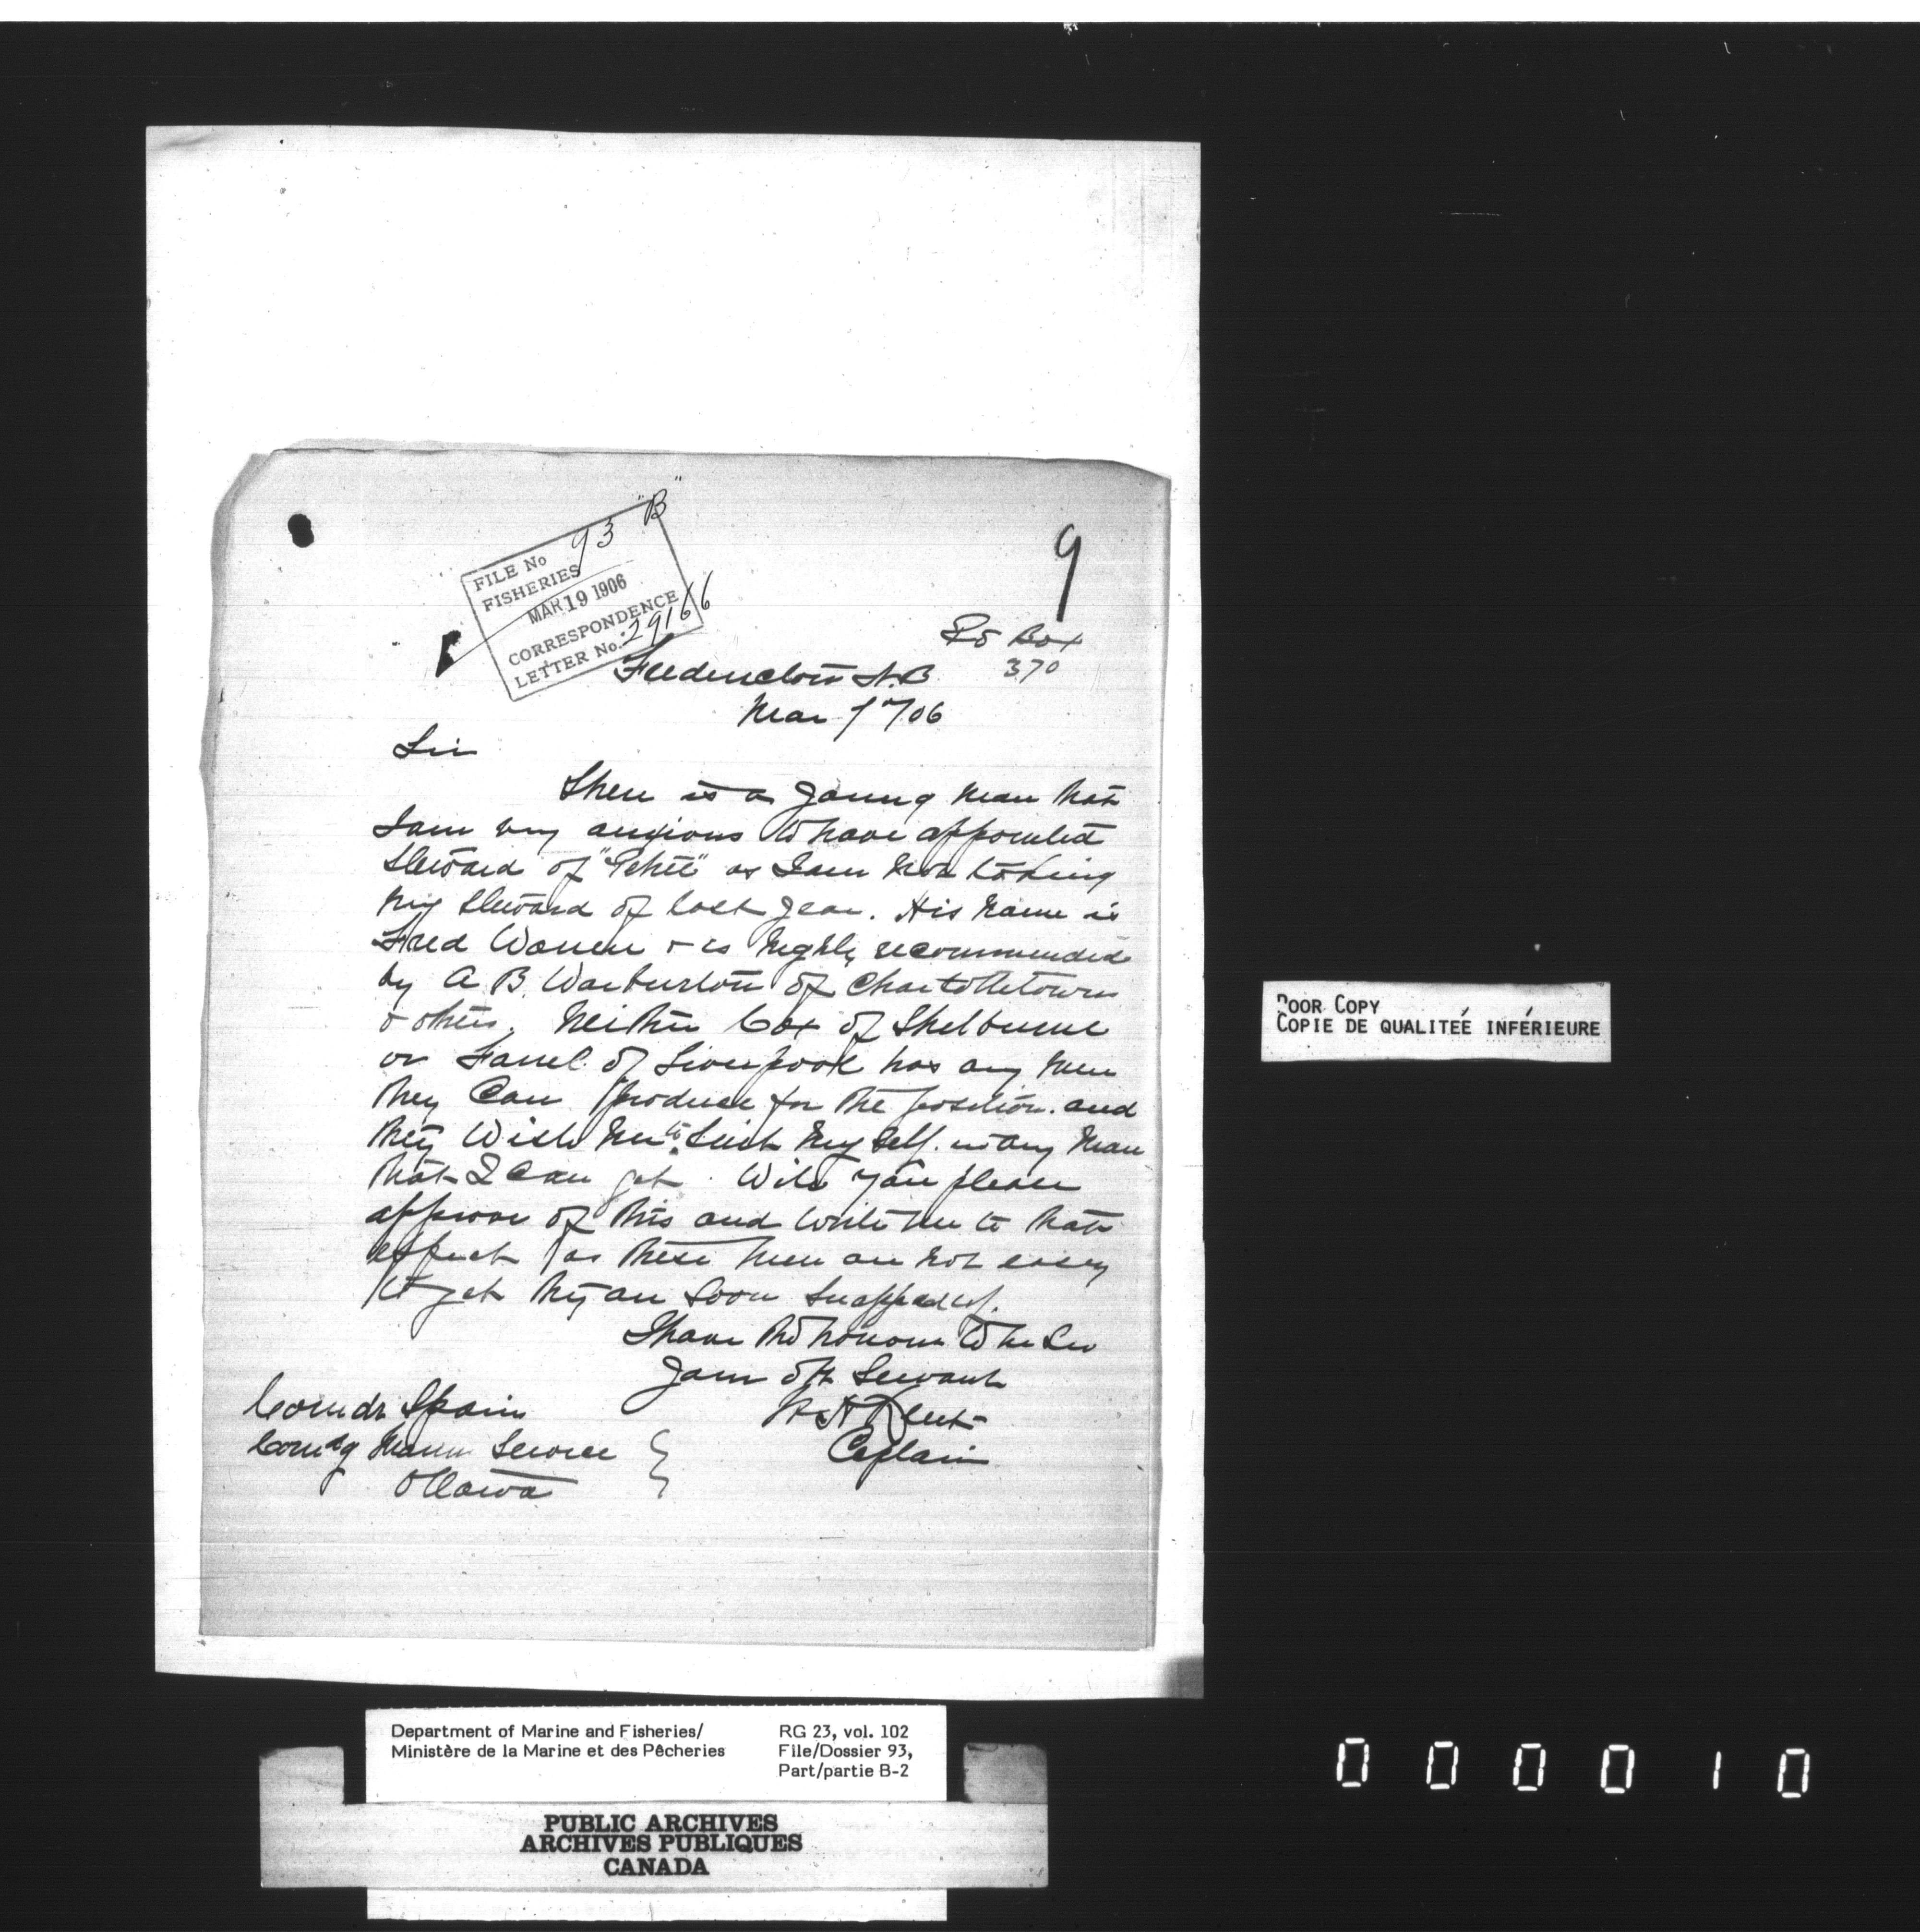 "B"
FILE No 93
FISHERIES
MAR 19 1906
CORRESPONDENCE
LETTER No. 29166
9
PO Box
370
Fredericton N.B
Mar 7th/06
Sir
There is a young man that
I am very anxious to have appointed
Steward of "Petrel" as I am not taking
my Steward of last year. His name is
Fred Warren & is highly recommended
by A B. Warburton of Charlottetown
& others. Neither Cox of Shelburne
or Farrel of Liverpool has any men
they can produce for the position. and
they wish me to suit myself. in any man
that I can get. Will you please
approve of this and write me to that
effect as these men are not easy
to get they are soon snapped up.
I have the honour to be Sir
Your obt Servant
Kent
Captain
Comdr Spain
Comdg Marine Service
Ottawa
POOR COPY
COPIE DE QUALITEÉ INFÉRIEURE
Department of Marine and Fisheries/
Ministère de la Marine et des Pêcheries
RG 23, vol. 102
File/Dossier 93,
Part/partie B-2
PUBLIC ARCHIVES
ARCHIVES PUBLIQUES
CANADA
000010